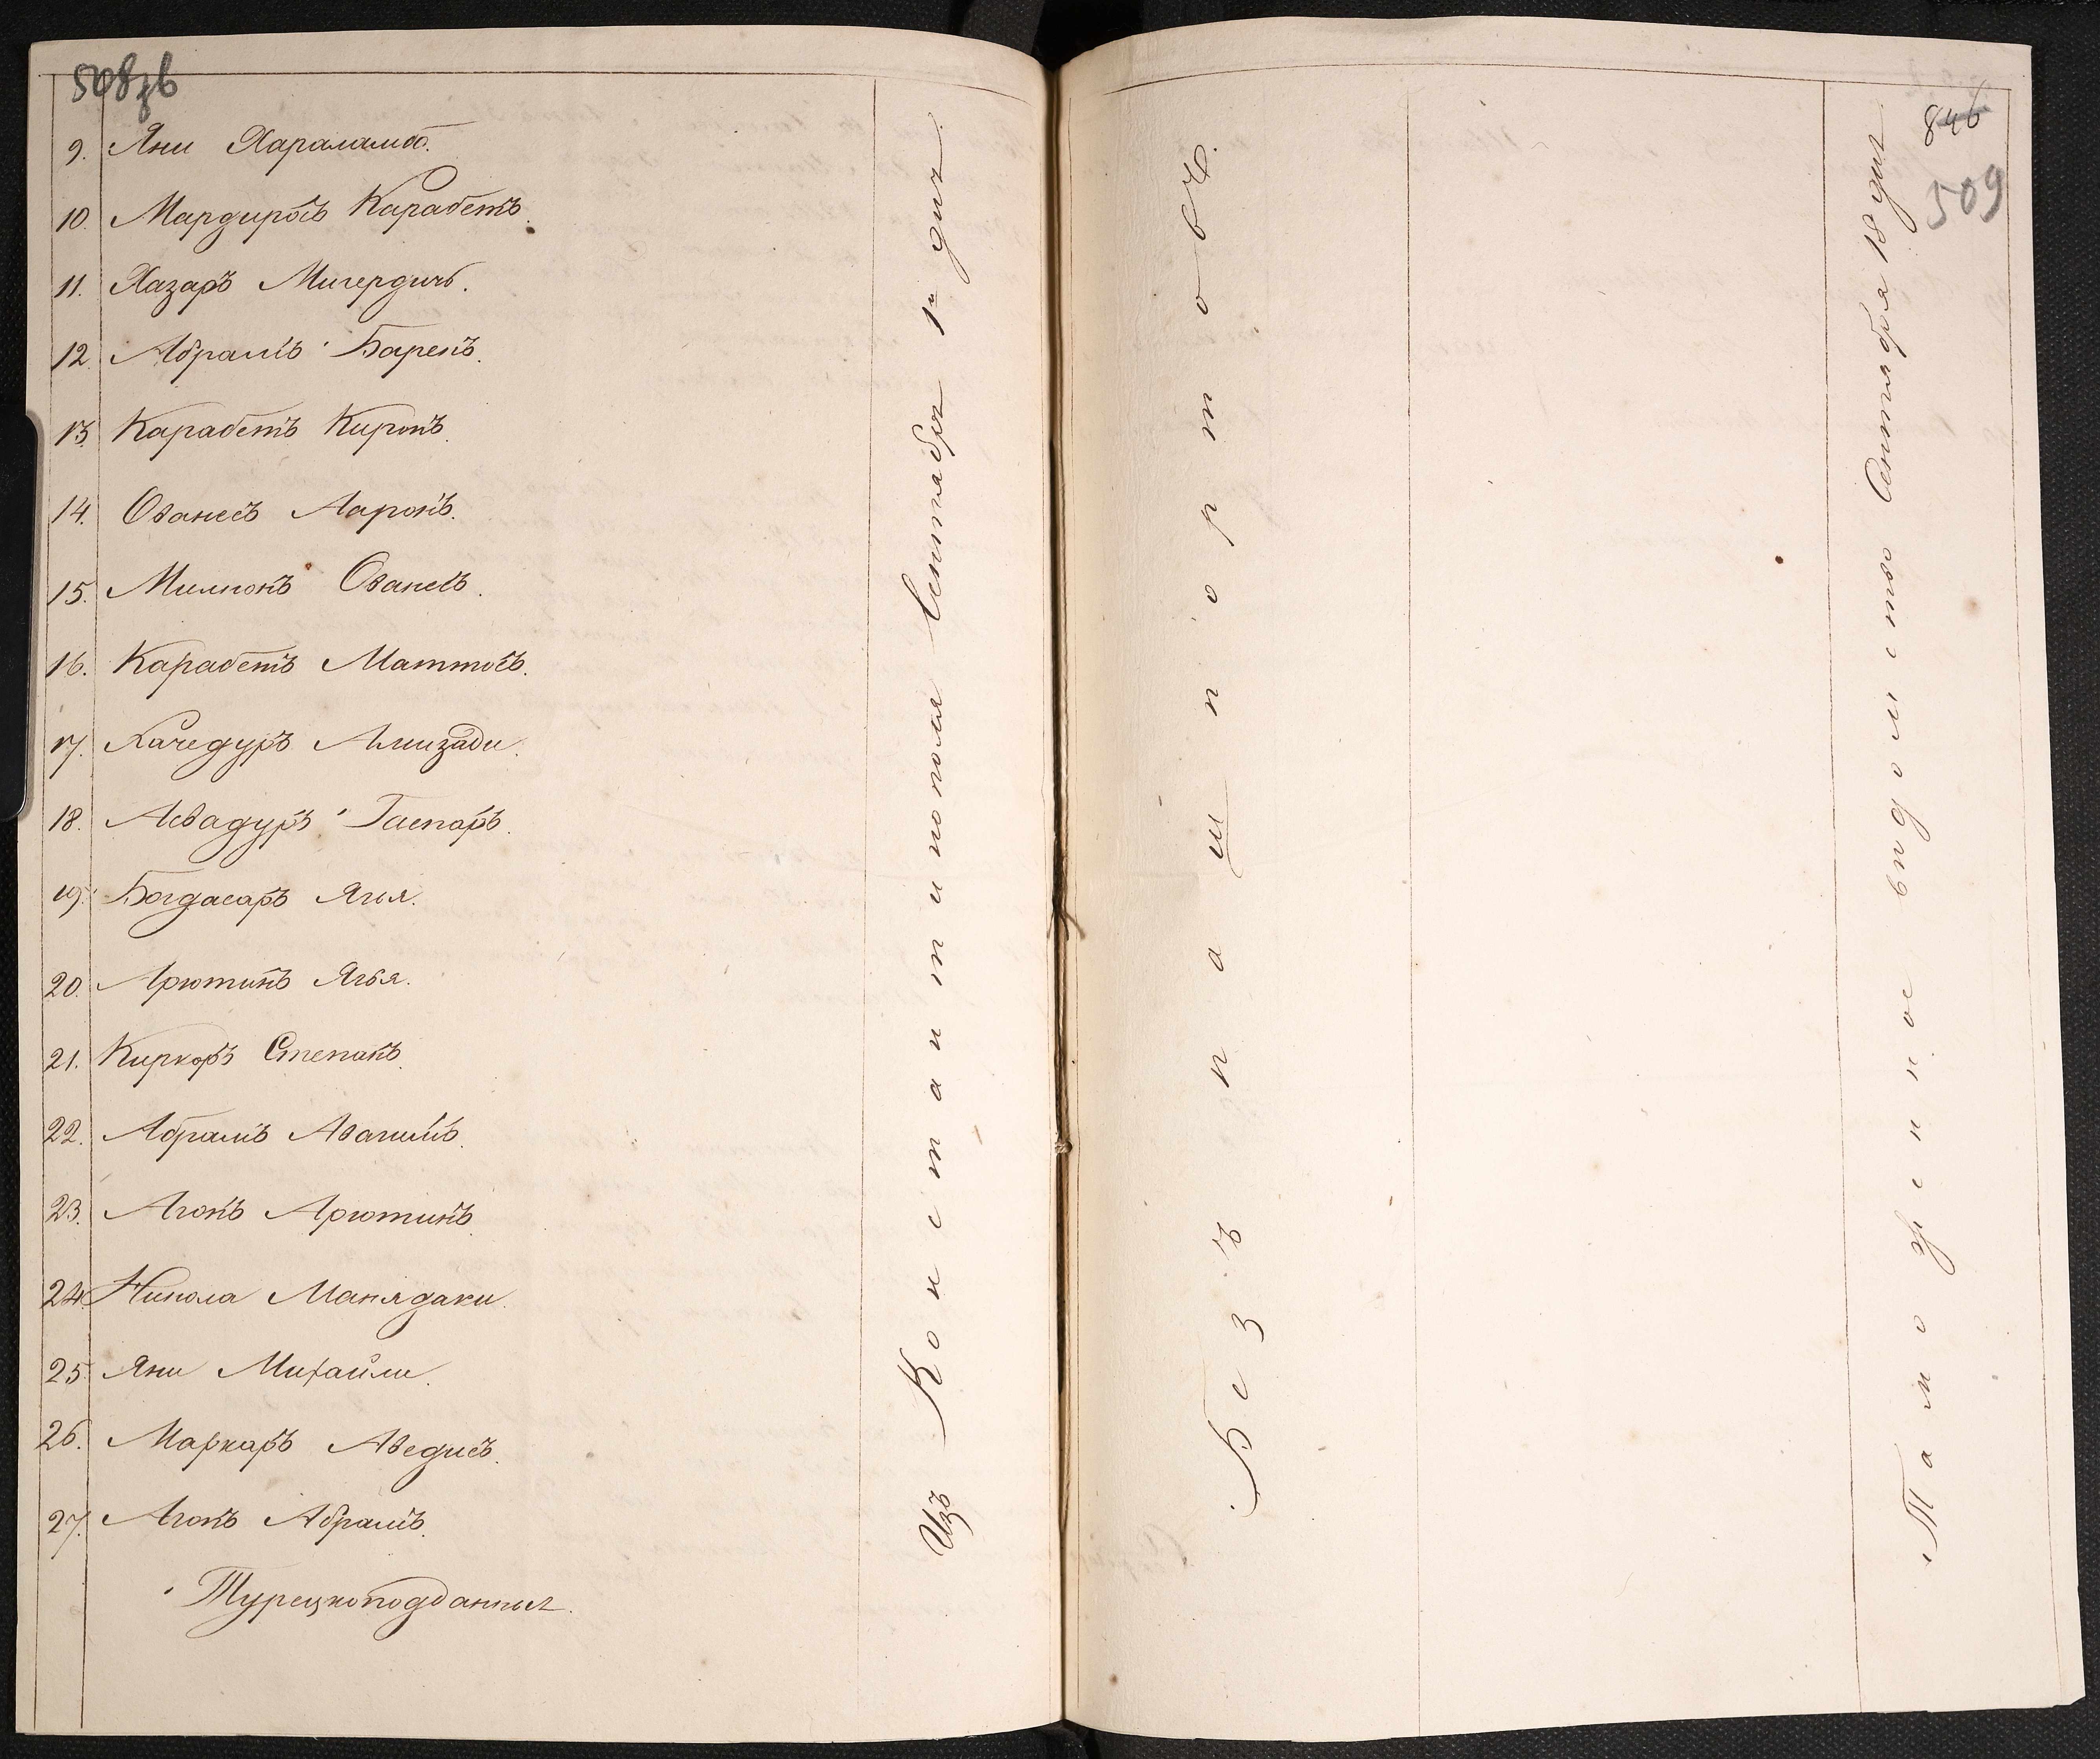 508зв
9. Яни Хараламб.
10. Мардиросъ Карабетъ.
11. Хазаръ Мигердичь.
12. Абрамъ Баренъ.
13. Карабетъ Киронъ.
14. Ованесъ Ааронъ.
15. Милконъ Ованесъ.
16. Карабетъ Маттосъ.
17. Хачедуръ
18. Асвадуръ Гаспаръ.
19. Богдасаръ Ягья.
20. Арютинъ Ягья.
21. Киркоръ Степанъ.
22. Абрамъ
23. Агопъ Арютинъ.
24. Никола Манядаки.
25. Яни Михайли.
26. Маркаръ Аведисъ.
27. Агопъ Абрамъ.
Турецкоподданные.
Изъ Константинополя Сентября 1го дня.
Безъ пашпортовъ.
Таможенное вѣдомство Сентября 18 дня
846
509